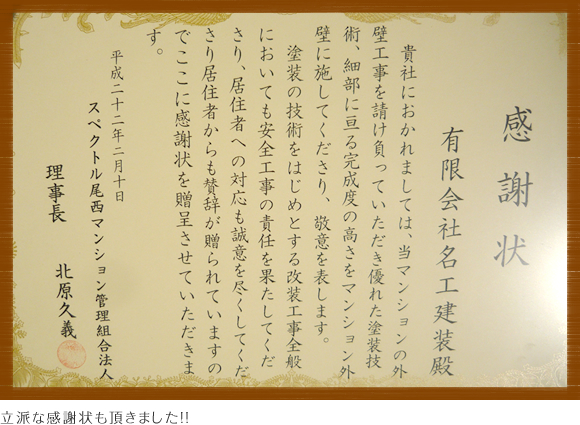 感謝状
有限会社名工建装殿
貴社におかれましては、当マンションの外
壁工事を請け負っていただき優れた塗装技
術、細部に亘る完成度の高さをマンション外
壁に施してくださり、敬意を表します。
塗装の技術をはじめとする改装工事全般
においても安全工事の責任を果たしてくだ
さり、居住者への対応も誠意を尽くしてくだ
さり居住者からも賛辞が贈られていますの
でここに感謝状を贈呈させていただきま
す。
平成二十二年二月十日
スペクトル尾西マンション管理組合法人
理事長 北原久義
立派な感謝状も頂きました!!